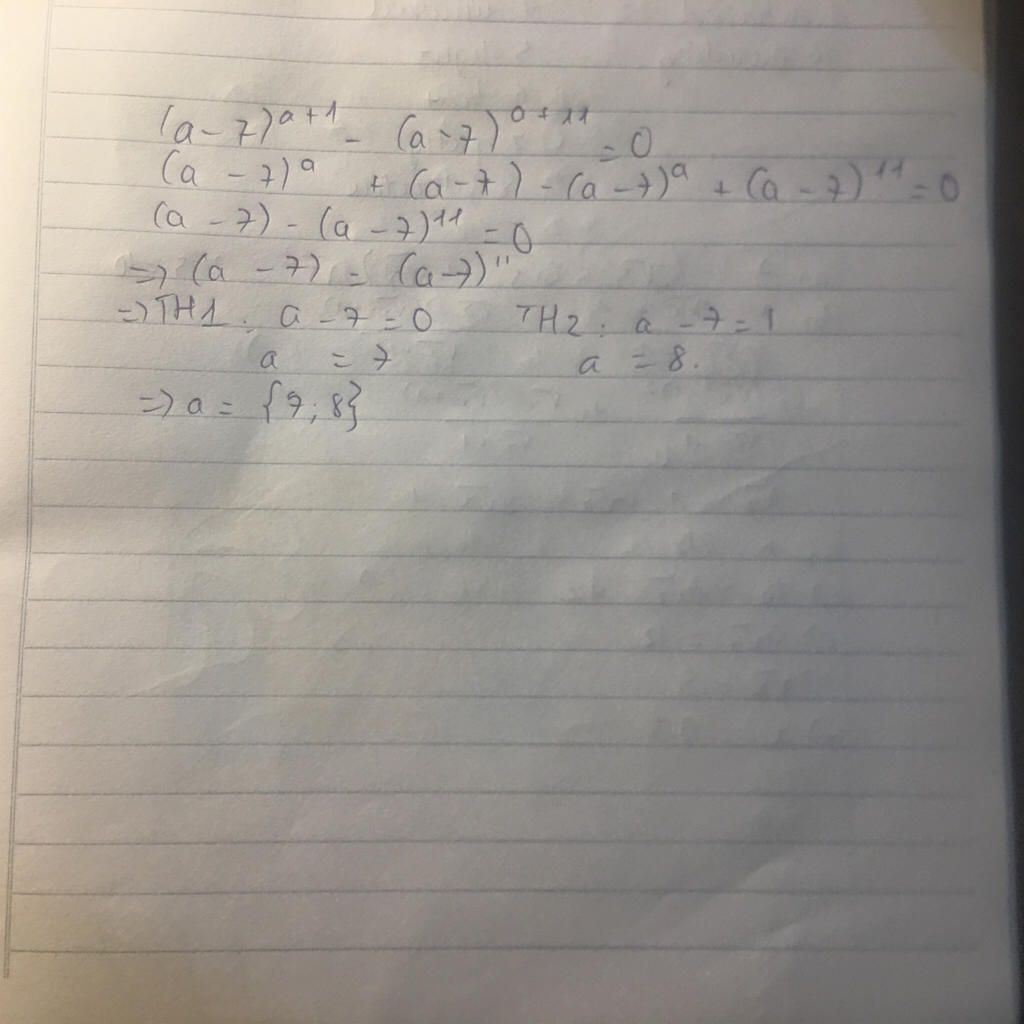 (a - 7)^{a+1} - (a - 7)^{a+11} = 0
(a - 7)^a + (a - 7) - (a - 7)^a + (a - 7)^{11} = 0
(a - 7) - (a - 7)^{11} = 0
=> (a - 7) = (a - 7)^{11}
=> TH1: a - 7 = 0 TH2: a - 7 = 1
a = 7 a = 8.
=> a = {7; 8}